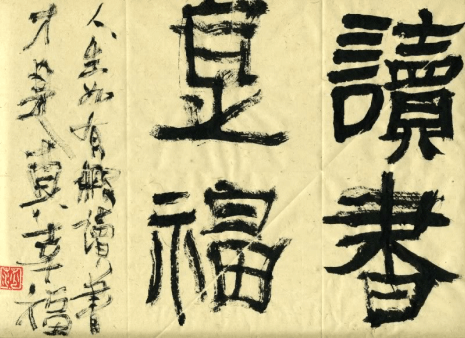 讀書
是福
人生如有讀書
才是真幸福